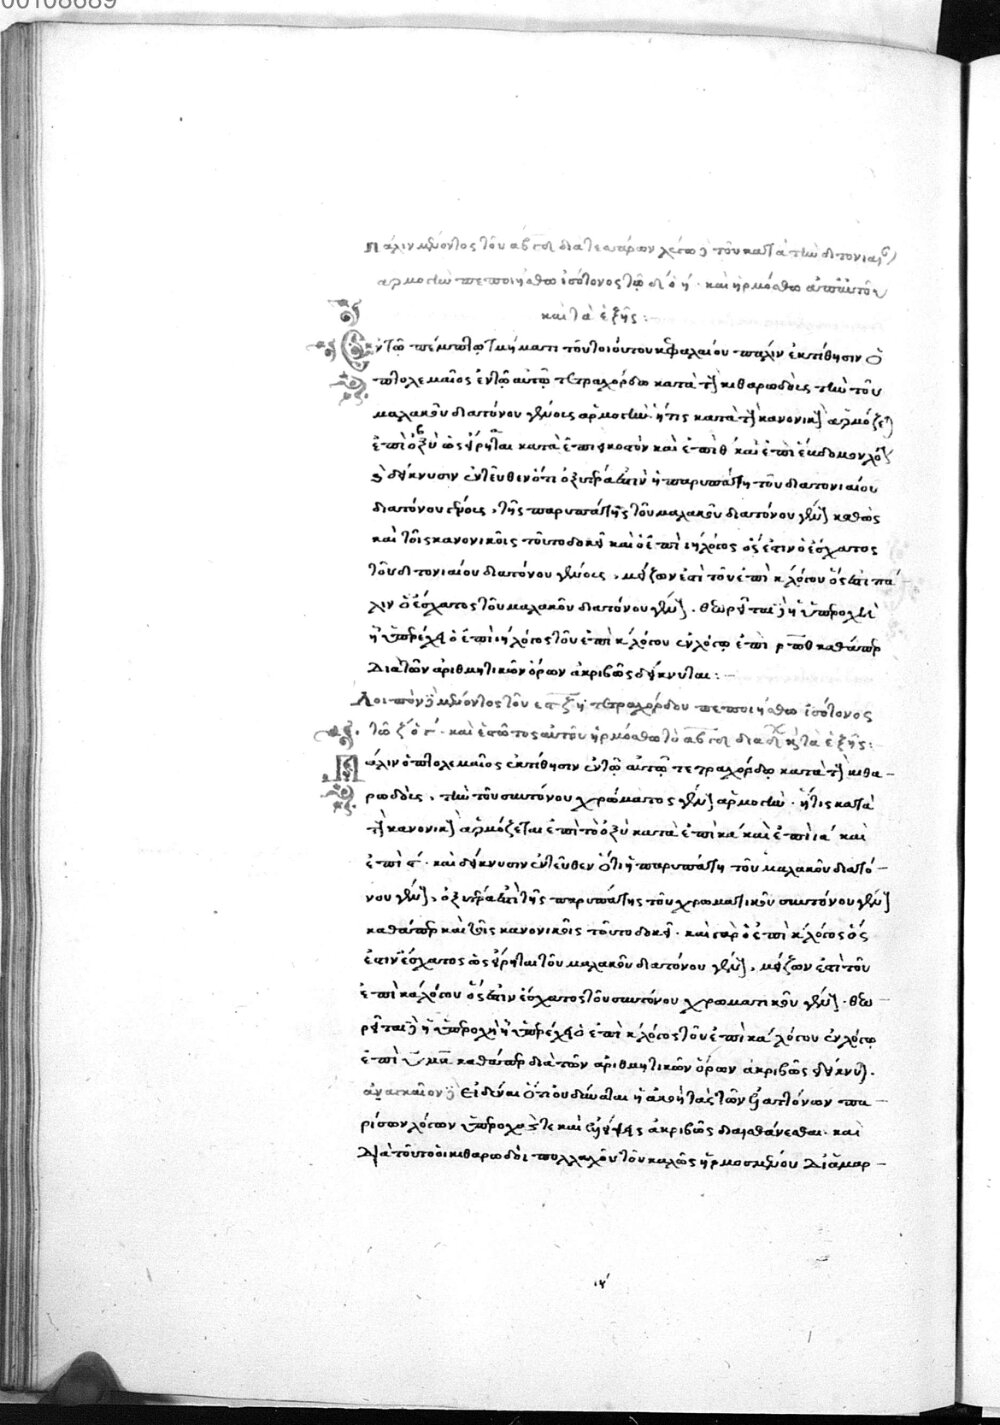 00108689
Πάλιν μένοντος τοῦ αβγδ διατεσσάρων λέγω δὴ τοῦ κατὰ τὴν διτονιαίαν
ἁρμογὴν πεποιήσθω ἰσότονος τῷ δ ὁ η · καὶ ἡρμόσθω ἀπ' αὐτοῦ
καὶ τὰ ἑξῆς :
Ἐν τῷ πέμπτῳ τμήματι τοῦ τοιούτου κεφαλαίου πάλιν ἐκτίθησιν ὁ
πτολεμαῖος ἐν τῷ αὐτῷ τετραχόρδῳ κατὰ τὴν κιθαρωδοὺς τὴν τοῦ
μαλακοῦ διατόνου γένους ἁρμογὴν · ἥτις κατὰ τὴν κανονικὴν ἁρμόζεται
ἐπὶ ὀξὺ ὡς εἴρηται κατὰ ἐπι εἰκοστὸν καὶ ἐπὶ θ' καὶ ἐπὶ ἕβδομον λόγον
δείκνυσιν ἐντεῦθεν ὅτι ὀξυτέρα ἐστὶν ἡ παρυπάτη τοῦ διτονιαίου
διατόνου γένους, τῆς παρυπάτης τοῦ μαλακοῦ διατόνου γένους καθὼς
καὶ τοῖς κανονικοῖς τοῦτο δοκεῖ καὶ ὁ ἐπὶ ιη λόγος ὅς ἐστιν ὁ ἔσχατος
τοῦ διτονιαίου διατόνου γένους, μείζων ἐστὶ τοῦ ἐπὶ κ λόγου ὅς ἐστι πά-
λιν ὁ ἔσχατος τοῦ μαλακοῦ διατόνου γένους · θεωρεῖται δὲ ἡ ὑπεροχὴ
ᾗ ὑπερέχει ὁ ἐπὶ ιη λόγος τοῦ ἐπὶ κ λόγου ἐν λόγῳ ἐπὶ ρ καθάπερ
διὰ τῶν ἀριθμητικῶν ὅρων ἀκριβῶς δείκνυται : -
Λοιπὸν δὲ μένοντος τοῦ εζη τετραχόρδου πεποιήσθω ἰσότονος
τῷ ζ ὁ γ · καὶ ἐφ' ὅσον ἑαυτοῦ ἡρμόσθω τὸ αβγδ διὰ δ καὶ τὰ ἑξῆς :
Πάλιν ὁ πτολεμαῖος ἐκτίθησιν ἐν τῷ αὐτῷ τετραχόρδῳ κατὰ τὴν κιθα-
ρωδοὺς, τὴν τοῦ συντόνου χρώματος γένους ἁρμογὴν · ἥτις κατὰ
τὴν κανονικὴν ἁρμόζεται ἐπὶ τὸ ὀξὺ κατὰ ἐπὶ κα' καὶ ἐπὶ ια' καὶ
ἐπὶ ϛ' · καὶ δείκνυσιν ἐντεῦθεν ὅτι ἡ παρυπάτη τοῦ μαλακοῦ διατό-
νου γένους, ὀξυτέρα ἐστὶ τῆς παρυπάτης τοῦ χρωματικοῦ συντόνου γένους
καθάπερ καὶ τοῖς κανονικοῖς τοῦτο δοκεῖ · καὶ γὰρ ὁ ἐπὶ κ λόγος ὅς
ἐστιν ἔσχατος ὡς εἴρηται τοῦ μαλακοῦ διατόνου γένους, μείζων ἐστὶ τοῦ
ἐπὶ κα λόγου ὅς ἐστιν ἔσχατος τοῦ συντόνου χρωματικοῦ γένους · θεω-
ρεῖται δὲ ἡ ὑπεροχὴ ᾗ ὑπερέχει ὁ ἐπὶ κ λόγος τοῦ ἐπὶ κα' λόγου ἐν λόγῳ
ἐπὶ υμ καθάπερ διὰ τῶν ἀριθμητικῶν ὅρων ἀκριβῶς δείκνυται.
ἀναγκαῖον δὲ εἰδέναι ὅτι οὐ δύναται ἡ ἀκοὴ τὰς τῶν ἐλαττόνων πα-
ρίσων λόγων ὑπεροχάς τε καὶ ἐλλείψεις ἀκριβῶς διαισθάνεσθαι · καὶ
διὰ τοῦτο οἱ κιθαρωδοὶ πολλαχοῦ τοῦ καλῶς ἡρμοσμένου διαμαρ-
ιγ'